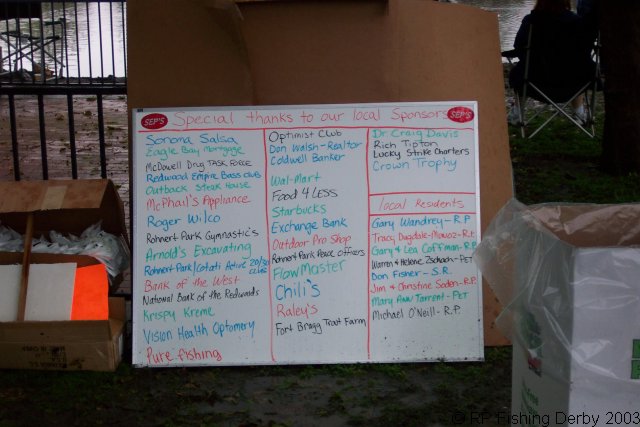 SEP'S Special thanks to our local Sponsors SEP'S
Sonoma Salsa
Eagle Bay Mortgage
McDowell Drug Task Force
Redwood Empire Bass Club
Outback Steak House
McPhail's Appliance
Roger Wilco
Rohnert Park Gymnastics
Arnold's Excavating
Rohnert Park/Cotati Active 20/30 Club
Bank of the West
National Bank of the Redwoods
Krispy Kreme
Vision Health Optometry
Pure fishing
Optimist Club
Don Walsh-Realtor
Coldwell Banker
Wal-Mart
Food 4 Less
Starbucks
Exchange Bank
Outdoor Pro Shop
Rohnert Park Peace officers
FlowMaster
Chili's
Raley's
Fort Bragg Trout Farm
Dr Craig Davis
Rich Tipton
Lucky Strike Charters
Crown Trophy
local Residents
Gary Wandrey-R.P.
Tracy Dugdale - R.P.
Gary & Lea Coffman-R.P.
Warren & Helene Zschach-PET
Don Fisher - S.R.
Jim & Christine Soden-R.P.
Mary Ann Torrent-PET
Michael O'Neill-R.P.
© RP Fishing Derby 2003